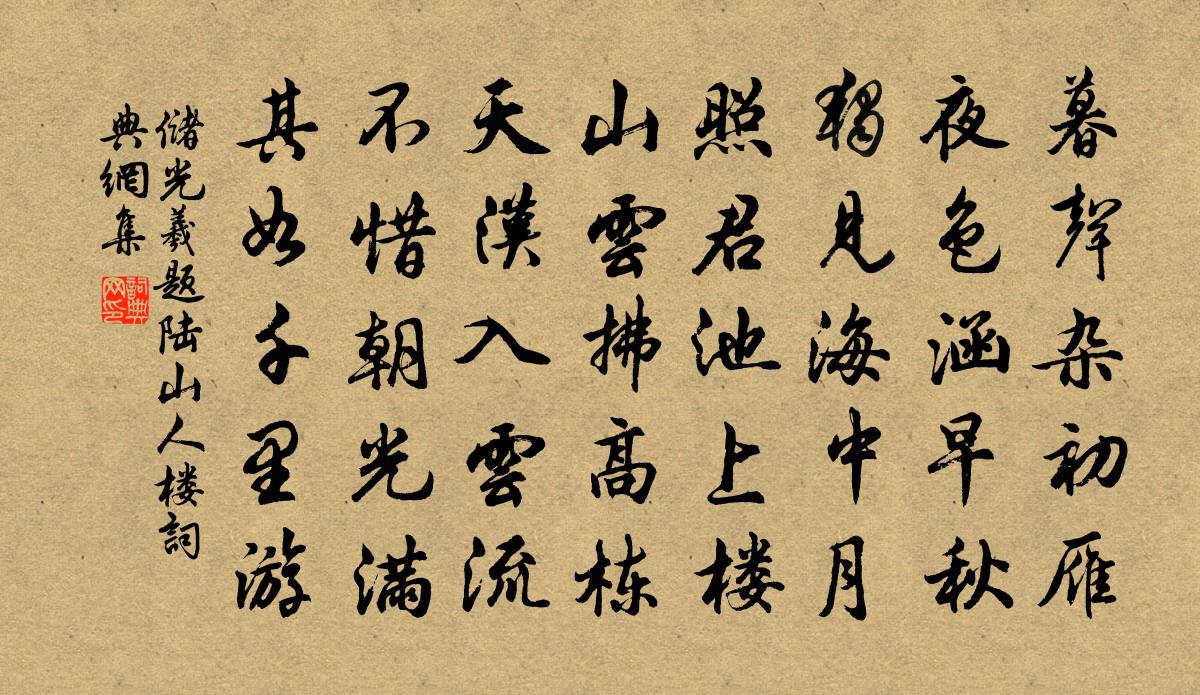 暮聲杂初雁
夜色涵早秋
獨見海中月
照君池上楼
山雲拂高栋
天漢入雲流
不惜朝光满
其如千里游
储光羲题陆山人楼詞
典網集
詞典
网印